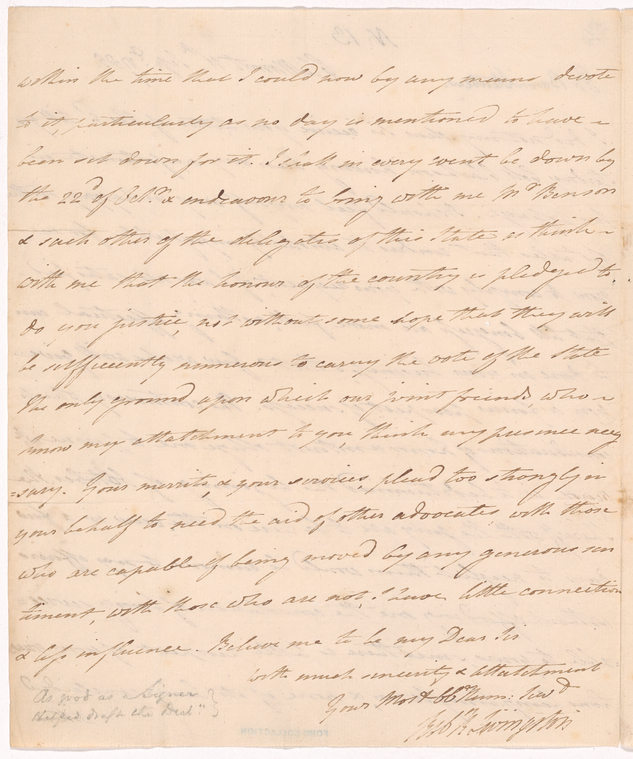 within the time that I could now by any means devote
to it particularly as no day is mentioned to have
been set down for it. I shall in every event be down by
the 22d of Octr. & endeavour to bring with me Mr Benson
& such other of the delegates of this State as think
with me that the honour of the country is pledged to
do you justice, not without some hope that they will
be sufficiently numerous to carry the vote of the State
the only ground upon which our joint friends who
know my attatchment to you, think my presence nec
=sary. Your merrits, & your services, plead too strongly in
your behalf to need the aid of other advocates with those
who are capable of being moved by any generous sen
timent, with those who are not, I have little connection
& less influence. Believe me to be my Dear Sir
with much sincerity & attatchment
Your Most Ob Hum: Serv t
Rob R Livingston
As good as a Signer
(helped draft the Decl")